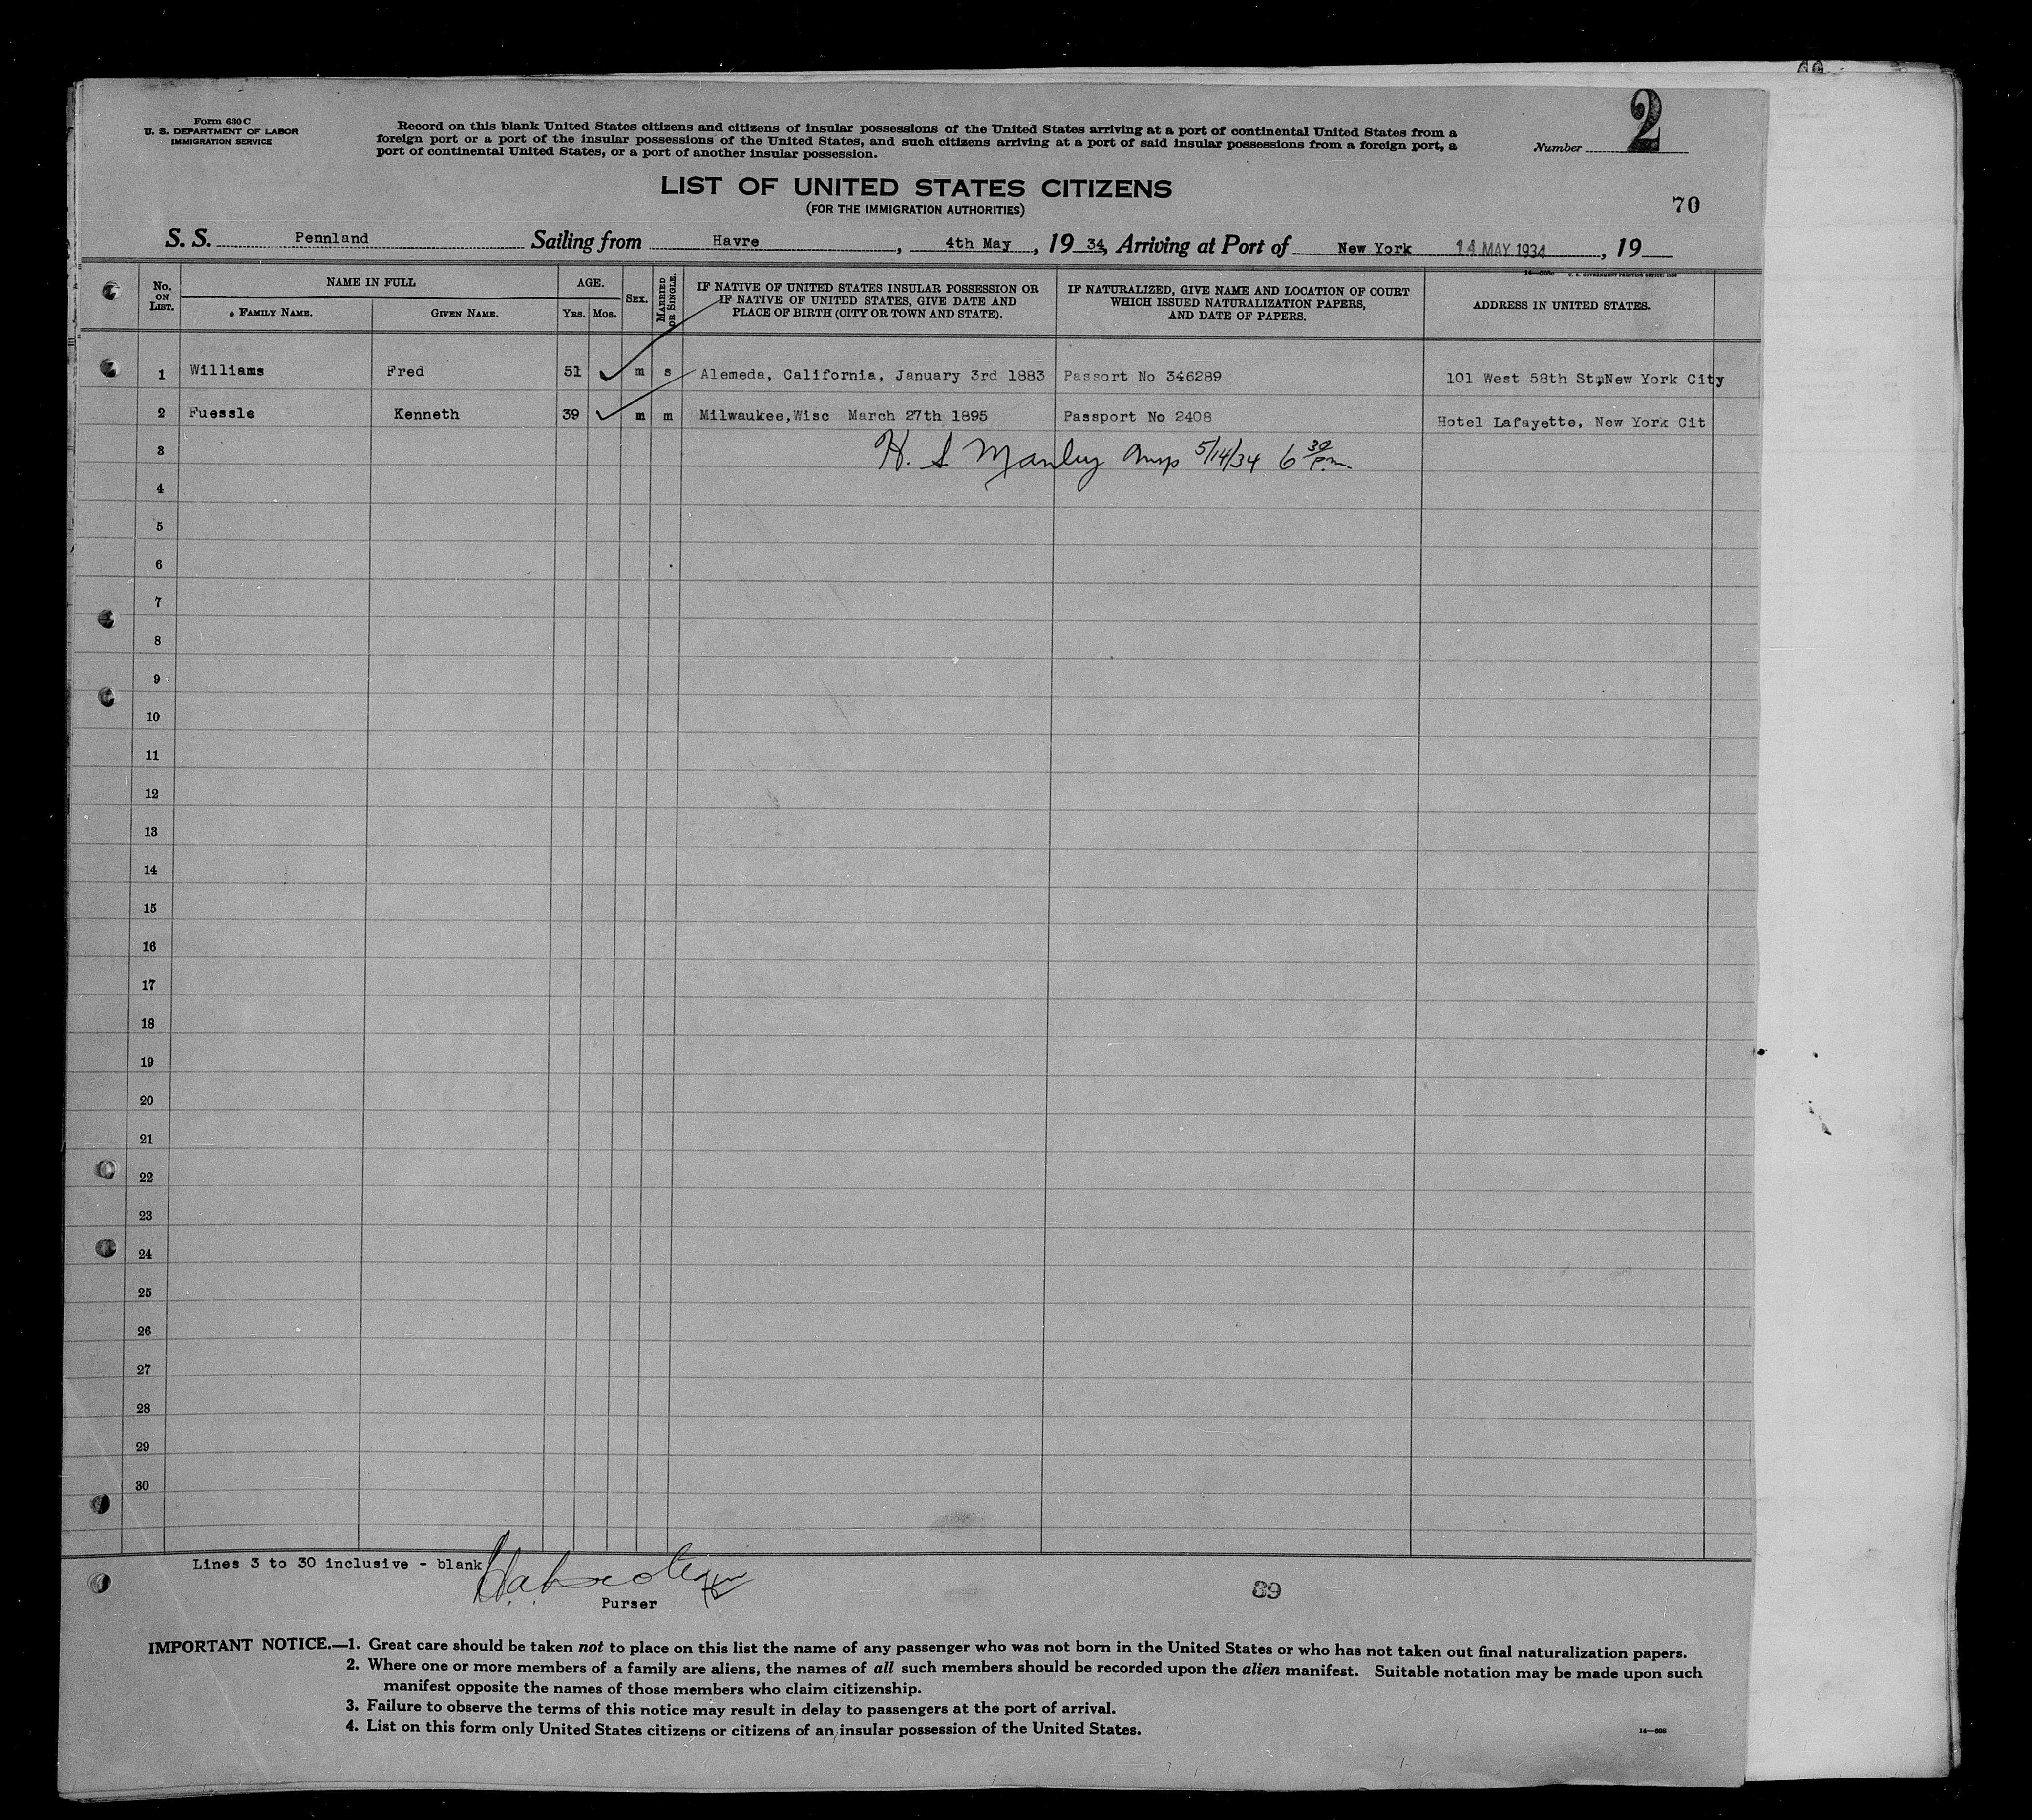 Form 630 C
U. S. DEPARTMENT OF LABOR
IMMIGRATION SERVICE
Record on this blank United States citizens and citizens of insular possessions of the United States arriving at a port of continental United States from a
foreign port or a port of the insular possessions of the United States, and such citizens arriving at a port of said insular possessions from a foreign port, a
port of continental United States, or a port of another insular possession.
Number 2
LIST OF UNITED STATES CITIZENS
(FOR THE IMMIGRATION AUTHORITIES)
70
S. S. Pennland Sailing from Havre, 4th May, 19 34, Arriving at Port of New York 14 MAY 1934, 19
U. S. GOVERNMENT PRINTING OFFICE
No. ON LIST.
NAME IN FULL
FAMILY NAME.
GIVEN NAME.
AGE.
YRS. MOS.
SEX.
MARRIED OR SINGLE.
IF NATIVE OF UNITED STATES INSULAR POSSESSION OR
IF NATIVE OF UNITED STATES, GIVE DATE AND
PLACE OF BIRTH (CITY OR TOWN AND STATE).
IF NATURALIZED, GIVE NAME AND LOCATION OF COURT
WHICH ISSUED NATURALIZATION PAPERS,
AND DATE OF PAPERS.
ADDRESS IN UNITED STATES.
1 Williams Fred 51 m s Alemeda, California, January 3rd 1883 Passort No 346289 101 West 58th St, New York City
2 Fuessle Kenneth 39 m m Milwaukee,Wisc March 27th 1895 Passport No 2408 Hotel Lafayette, New York Cit
3 H. S Manley 5/14/34 6 30 p.m.
4
5
6
7
8
9
10
11
12
13
14
15
16
17
18
19
20
21
22
23
24
25
26
27
28
29
30
Lines 3 to 30 inclusive - blank
Purser
89
IMPORTANT NOTICE.—1. Great care should be taken not to place on this list the name of any passenger who was not born in the United States or who has not taken out final naturalization papers.
2. Where one or more members of a family are aliens, the names of all such members should be recorded upon the alien manifest. Suitable notation may be made upon such
manifest opposite the names of those members who claim citizenship.
3. Failure to observe the terms of this notice may result in delay to passengers at the port of arrival.
4. List on this form only United States citizens or citizens of an insular possession of the United States.